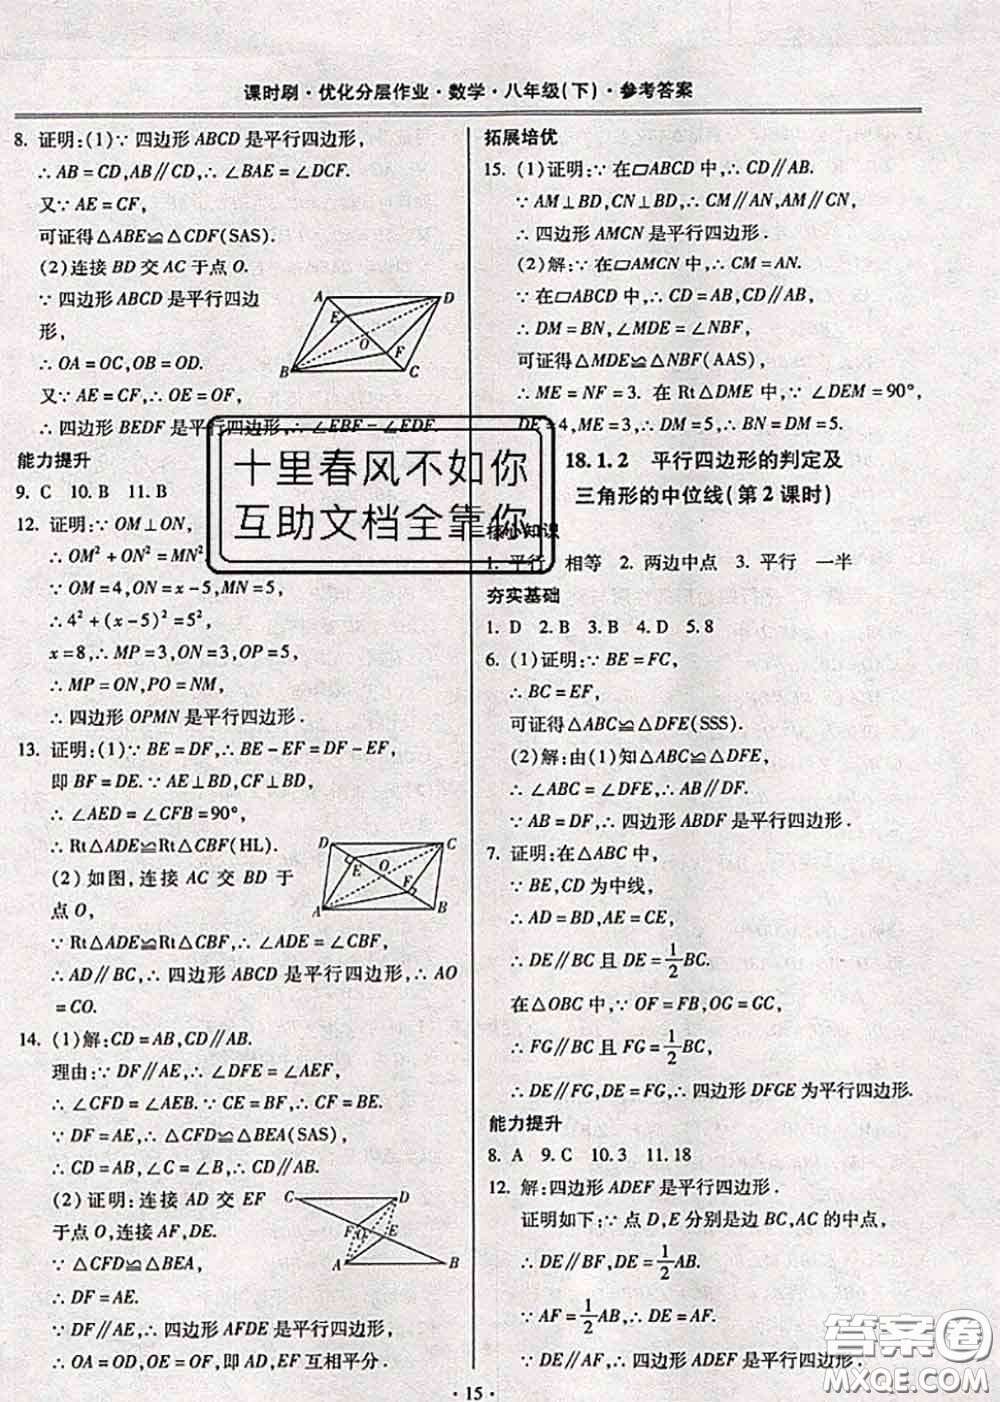 课时刷·优化分层作业·数学·八年级(下)·参考答案
8. 证明:(1)∵四边形ABCD是平行四边形,
∴AB=CD,AB∥CD,∴∠BAE=∠DCF.
又∵AE=CF,
可证得△ABE≌△CDF(SAS).
(2)连接BD交AC于点O.
∵四边形ABCD是平行四边
形,
∴OA=OC,OB=OD.
又∵AE=CF,∴OE=OF,
∴四边形BEDF是平行四边形,∴∠EBF=∠EDF.
A D E O F B C
能力提升
9. C 10. B 11. B
12. 证明:∵OM⊥ON,
∴OM²+ON²=MN².
∵OM=4,ON=x-5,MN=5,
∴4²+(x-5)²=5²,
x=8,∴MP=3,ON=3,OP=5,
∴MP=ON,PO=NM,
∴四边形OPMN是平行四边形.
13. 证明:(1)∵BE=DF,∴BE-EF=DF-EF,
即BF=DE.∵AE⊥BD,CF⊥BD,
∴∠AED=∠CFB=90°,
∴Rt△ADE≌Rt△CBF(HL).
(2)如图,连接AC交BD于
点O,
∵Rt△ADE≌Rt△CBF,∴∠ADE=∠CBF,
∴AD∥BC,∴四边形ABCD是平行四边形,∴AO
=CO.
D C E O F A B
14. (1)解:CD=AB,CD∥AB.
理由:∵DF∥AE,∴∠DFE=∠AEF,
∴∠CFD=∠AEB.∵CE=BF,∴CF=BE.
∵DF=AE,∴△CFD≌△BEA(SAS),
∴CD=AB,∠C=∠B,∴CD∥AB.
(2)证明:连接AD交EF
于点O,连接AF,DE.
∵△CFD≌△BEA,
∴DF=AE.
∵DF∥AE,∴四边形AFDE是平行四边形,
∴OA=OD,OE=OF,即AD、EF互相平分.
C D F O E A B
拓展培优
15. (1)证明:∵在▱ABCD中,∴CD∥AB.
∵AM⊥BD,CN⊥BD,∴CM∥AN,AM∥CN,
∴四边形AMCN是平行四边形.
(2)解:∵在▱AMCN中,∴CM=AN.
∵在▱ABCD中,∴CD=AB,CD∥AB,
∴DM=BN,∠MDE=∠NBF,
可证得△MDE≌△NBF(AAS),
∴ME=NF=3.在Rt△DME中,∵∠DEM=90°,
DE=4,ME=3,∴DM=5,∴BN=DM=5.
18.1.2 平行四边形的判定及
三角形的中位线(第2课时)
核心知识
1. 平行 相等 2. 两边中点 3. 平行 一半
夯实基础
1. D 2. B 3. B 4. D 5. 8
6. (1)证明:∵BE=FC,
∴BC=EF,
可证得△ABC≌△DFE(SSS).
(2)解:由(1)知△ABC≌△DFE,
∴∠ABC=∠DFE,∴AB∥DF.
∵AB=DF,∴四边形ABDF是平行四边形.
7. 证明:在△ABC中,
∵BE,CD为中线,
∴AD=BD,AE=CE,
∴DE∥BC且DE=1/2BC.
在△OBC中,∵OF=FB,OG=GC,
∴FG∥BC且FG=1/2BC,
∴DE∥FG,DE=FG,∴四边形DFGE为平行四边形.
能力提升
8. A 9. C 10. 3 11. 18
12. 解:四边形ADEF是平行四边形.
证明如下:∵点D,E分别是边BC,AC的中点,
∴DE∥BF,DE=1/2AB.
∵AF=1/2AB,∴DE=AF.
∵DE∥AF,∴四边形ADEF是平行四边形.
· 15 ·
十里春风不如你
互助文档全靠你
答案圈
MXQE.COM